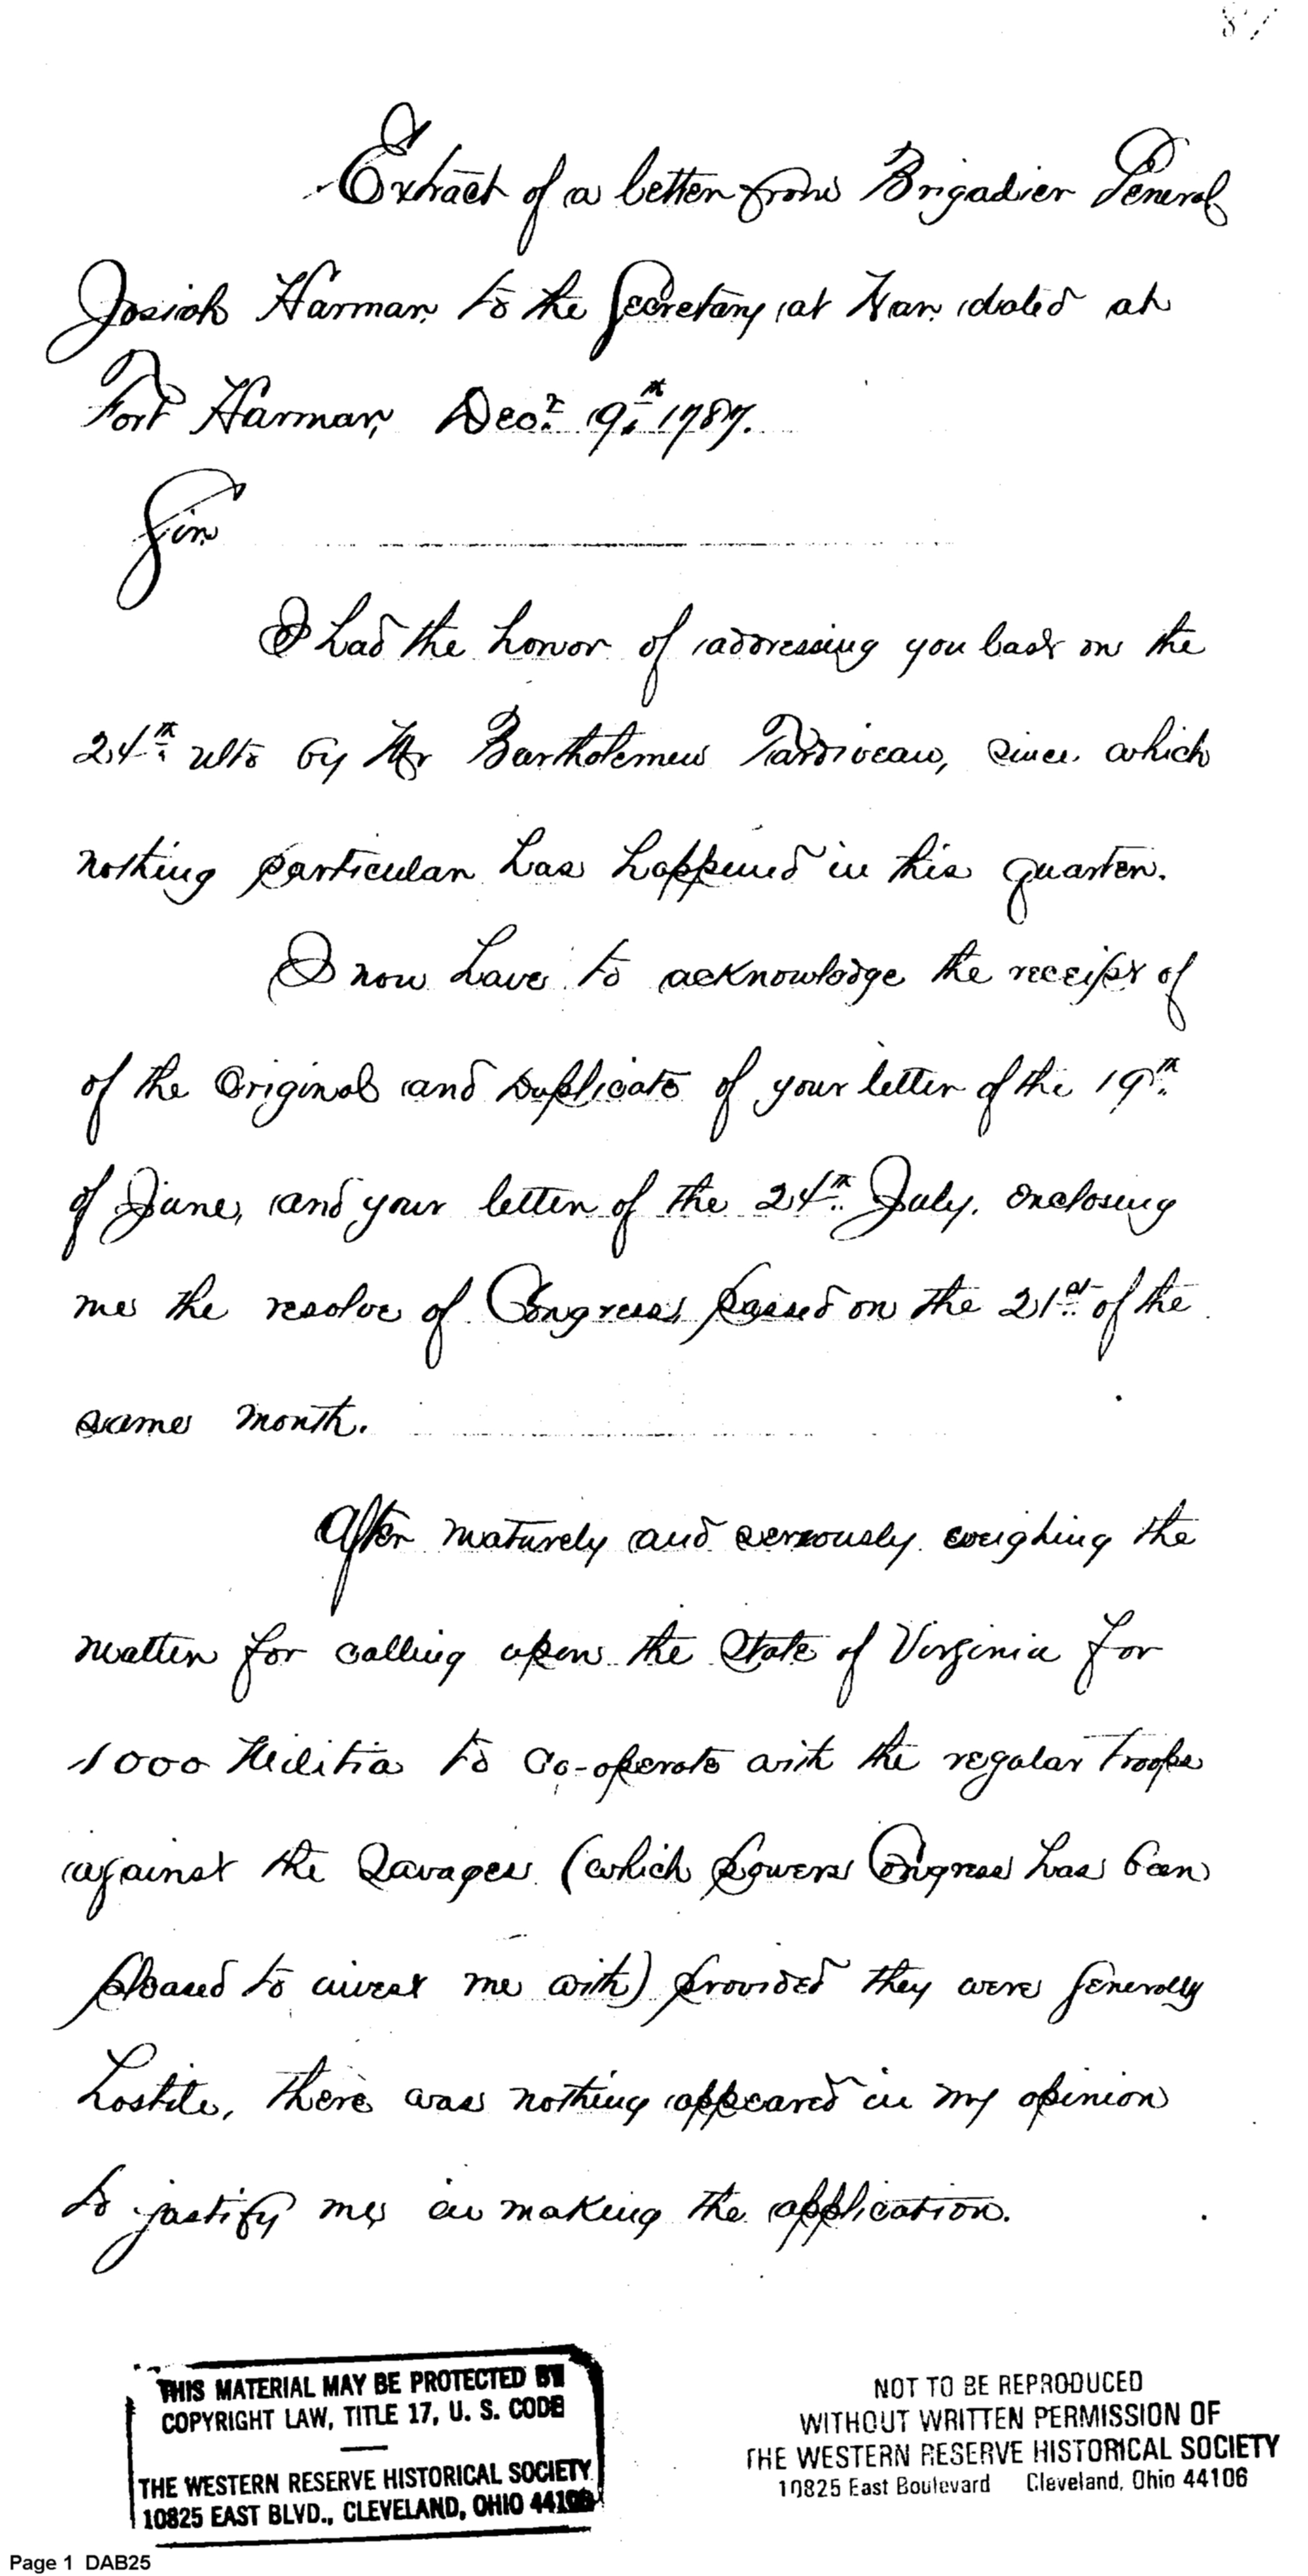 87
Extract of a letter from Brigadier General
Josiah Harmar to the Secretary at War dated at
Fort Harmar, Decr. 9th 1787.
Sir
I had the honor of addressing you last on the
24th ulto by Mr Bartholemew Tardiveau, since which
nothing particular has happened in this quarter.
I now have to acknowledge the receipt of
of the Original and Duplicate of your letter of the 19th
of June, and your letter of the 24th July, enclosing
me the resolve of Congress passed on the 21st of the
same month.
After maturely and seriously weighing the
matter for calling upon the State of Virginia for
1000 Militia to co-operate with the regular troops
against the Savages (which powers Congress has been
pleased to invest me with) provided they were generally
hostile, there was nothing appeared in my opinion
to justify me in making the application.
THIS MATERIAL MAY BE PROTECTED BY
COPYRIGHT LAW, TITLE 17, U. S. CODE
THE WESTERN RESERVE HISTORICAL SOCIETY
10825 EAST BLVD., CLEVELAND, OHIO 44106
NOT TO BE REPRODUCED
WITHOUT WRITTEN PERMISSION OF
THE WESTERN RESERVE HISTORICAL SOCIETY
10825 East Boulevard Cleveland, Ohio 44106
Page 1 DAB25